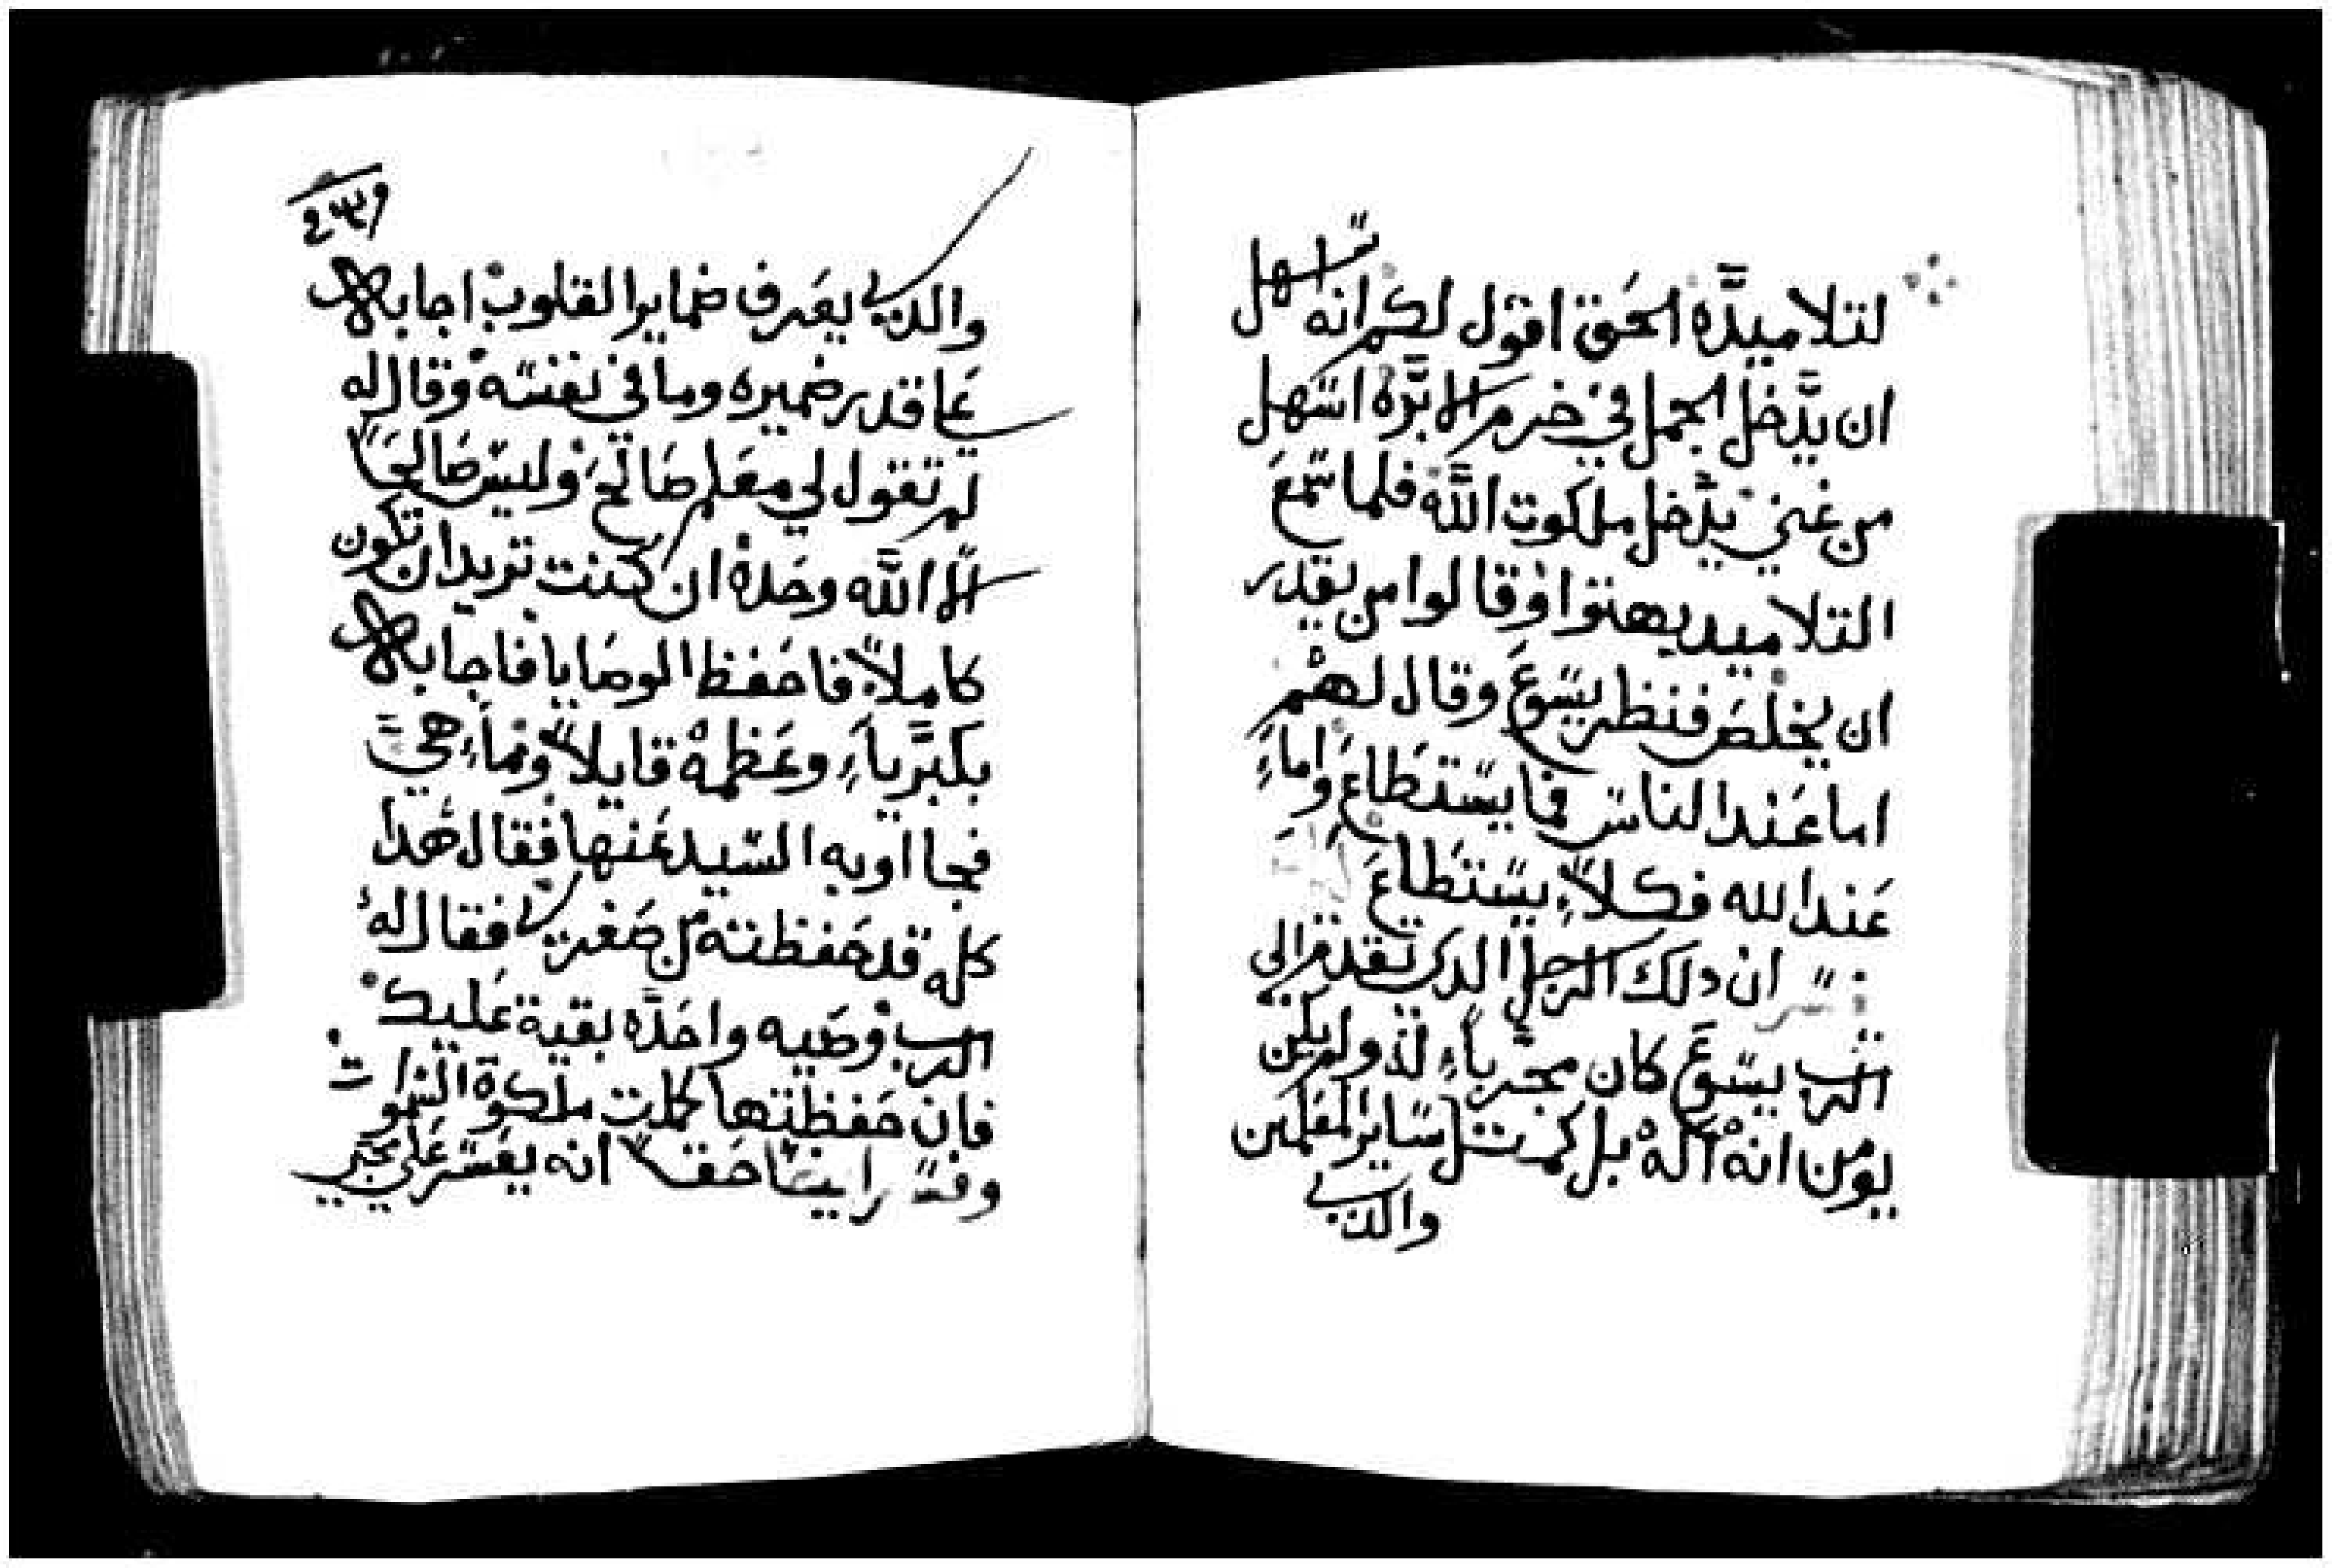 لتلاميده الحق اقول لكم انه سهل
ان يدخل الجمل في خرم الابره اسهل
من غني يدخل ملكوت الله فلما سمع
التلاميد بهتوا وقالوا من يقدر
ان يخلص فنظر يسوع وقال لهم
اما عند الناس فما يستطاع واماء
عند الله فكلاء يستطاع
ان دلك الرجل الدي تقدم الي
الرب يسوع كان مجرباء له ولم يكن
يومن انه اله بل كمتل ساير المعلمين
والدي
والدي يعرف ضماير القلوب اجابه
علي قدر ضميره وما في نفسه وقال له
لم تقول لي معلم صالح وليس صالحا
الا الله وحده ان كنت تريد ان تكون
كاملا فاحفظ الوصايا فاجابه
بكبرياء وعظمه قايلا وماء هي
فجااوبه السيد عنها فقال هدا
كله قد حفظته من صغري فقال له
الرب وصيه واحده بقية عليك
فان حفظتها كملت ملكوة السموات
وفسر ايضا حقا انه يعسر علي